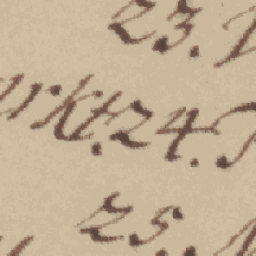 23.
rkt. 24.
25.